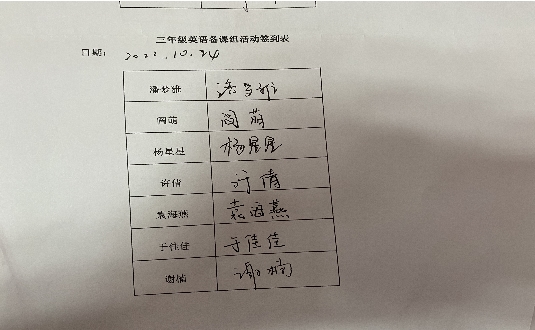 三年级英语备课组活动签到表
日期： 2022.10.24
潘珍雅 潘珍雅
阎萌 阎萌
杨星星 杨星星
许倩 许倩
袁海燕 袁海燕
于佳佳 于佳佳
谢楠 谢楠